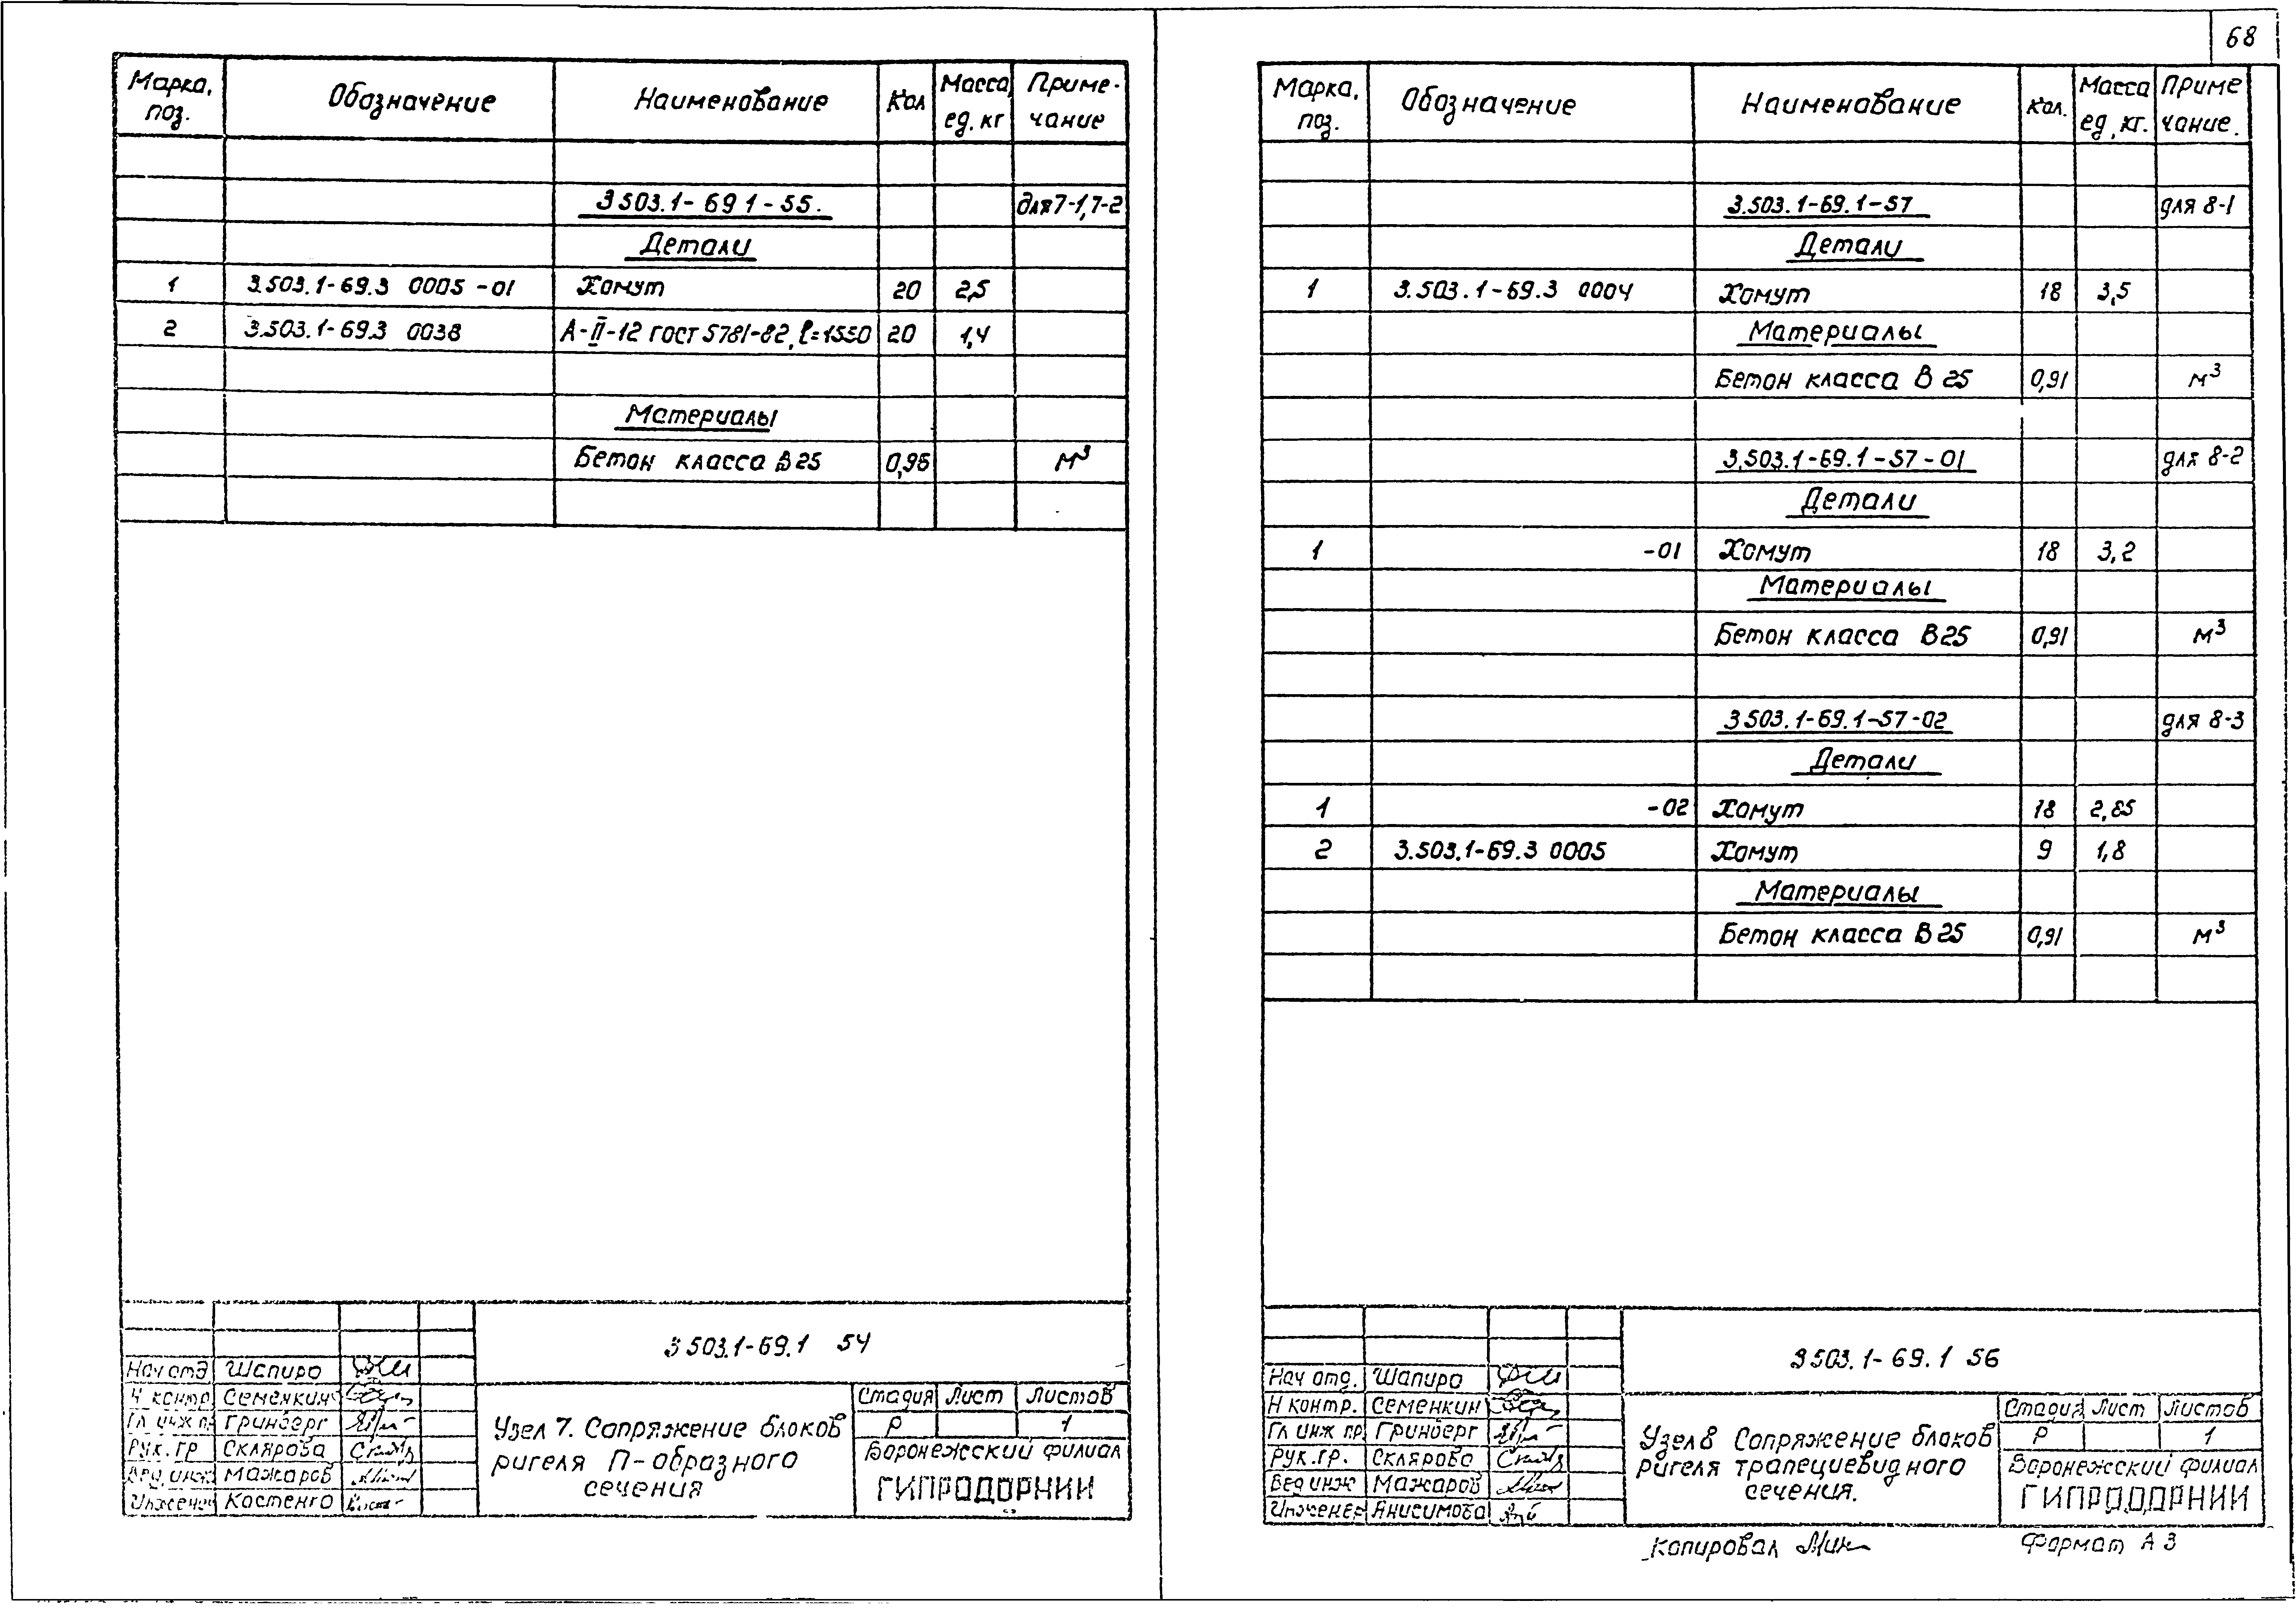 68
Марка, поз. Обозначение Наименование Кол Масса ед. кг Приме- чание
3 503.1- 69 1 - 55. для 7-1, 7-2
Детали
1 3.503.1-69.3 0005 -01 Хомут 20 2,5
2 3.503.1-69.3 0038 А-II-12 ГОСТ 5781-82, ℓ=1550 20 1,4
Материалы
Бетон класса В 25 0,96 м³
3 503.1-69.1 54
Нач отд Шапиро
Н контр Семенкин
Гл инж пр Гринберг
Рук. гр Склярова
Вед. инж Мажаров
Инженер Костенко
Узел 7. Сопряжение блоков
ригеля П-образного
сечения
Стадия Лист Листов
Р 1
Воронежский филиал
ГИПРОДОРНИИ
Марка, поз. Обозначение Наименование Кол. Масса ед, кг. Приме чание.
3.503.1-69.1-57 для 8-1
Детали
1 3.503.1-69.3 0004 Хомут 18 3,5
Материалы
Бетон класса В 25 0,91 м³
3.503.1-69.1-57-01 для 8-2
Детали
1 -01 Хомут 18 3,2
Материалы
Бетон класса В25 0,91 м³
3 503.1-69.1-57-02 для 8-3
Детали
1 -02 Хомут 18 2,85
2 3.503.1-69.3 0005 Хомут 9 1,8
Материалы
Бетон класса В 25 0,91 м³
3 503.1-69.1 56
Нач отд. Шапиро
Н контр. Семенкин
Гл инж пр. Гринберг
Рук.гр. Склярова
Вед инж Мажаров
Инженер Анисимова
Узел 8 Сопряжение блоков
ригеля трапециевидного
сечения.
Стадия Лист Листов
Р 1
Воронежский филиал
ГИПРОДОРНИИ
Копировал Формат А 3